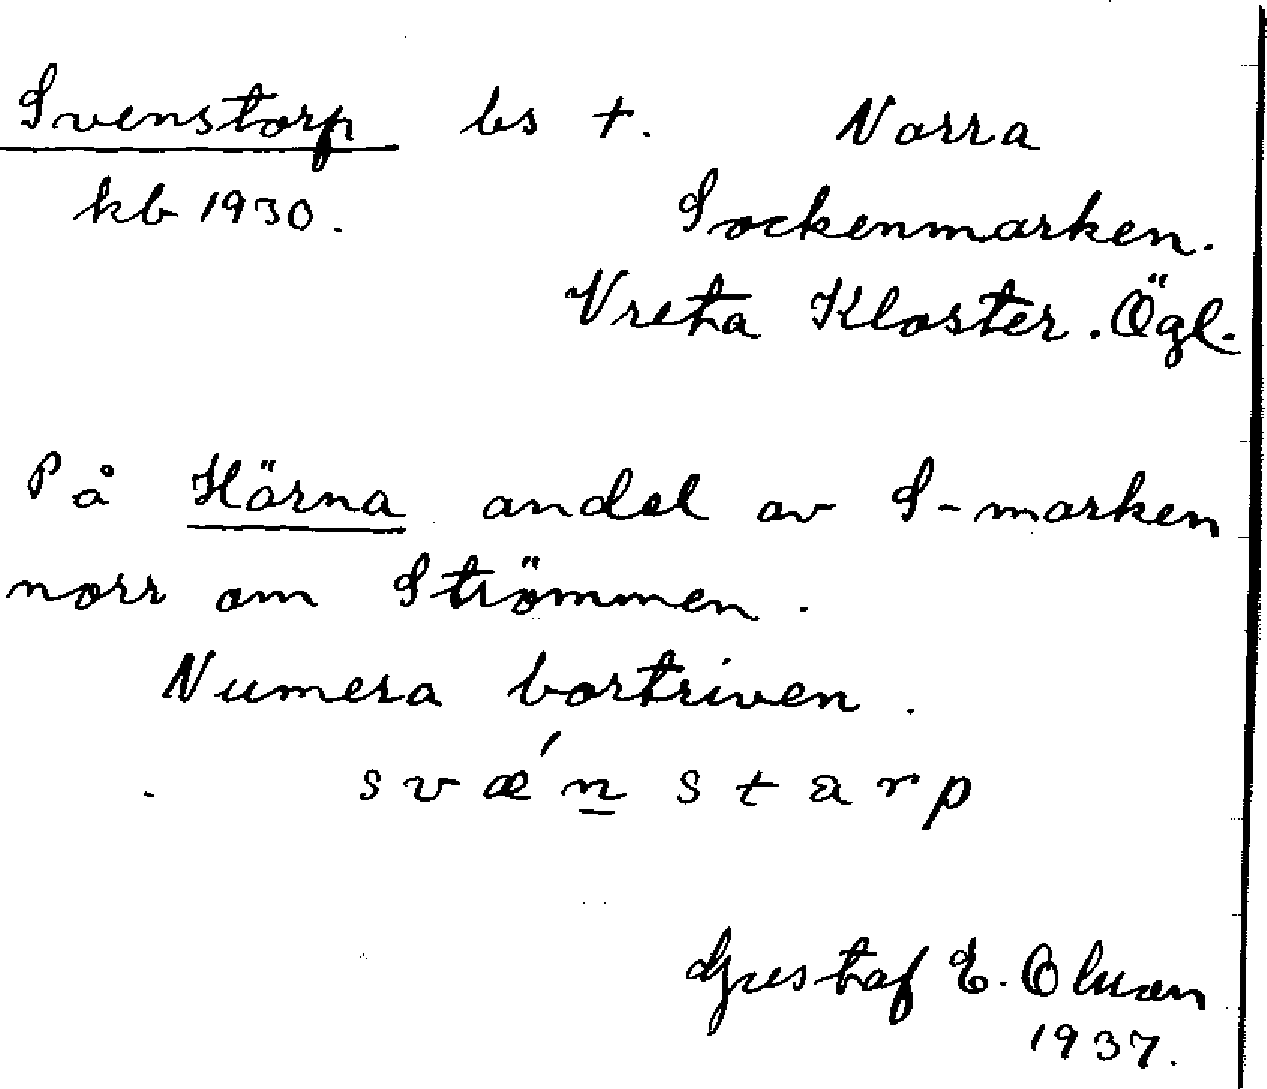 Svenstorp bs +. Norra
kb 1930. Sockenmarken.
Vreta Kloster. Ögl.
På Härna andel av S-marken
norr om Strömmen.
Numera bortriven.
svǽn̲starp
Gustaf E.
1937.